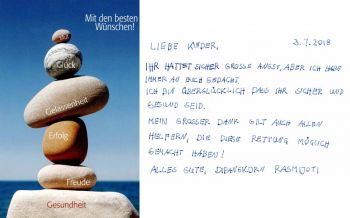 Mit den besten
Wünschen!
Mut
Glück
Gelassenheit
Erfolg
Freude
Gesundheit
LIEBE KINDER,
3.7.2018
IHR HATTET SICHER GROSSE ANGST, ABER ICH HABE
IMMER AN EUCH GEDACHT.
ICH BIN ÜBERGLÜCKLICH DASS IHR SICHER UND
GESUND SEID.
MEIN GROSSER DANK GILT AUCH ALLEN
HELFERN, DIE DIESE RETTUNG MÖGLICH
GEMACHT HABEN!
ALLES GUTE, DIPANGKORN RASMIJOTI